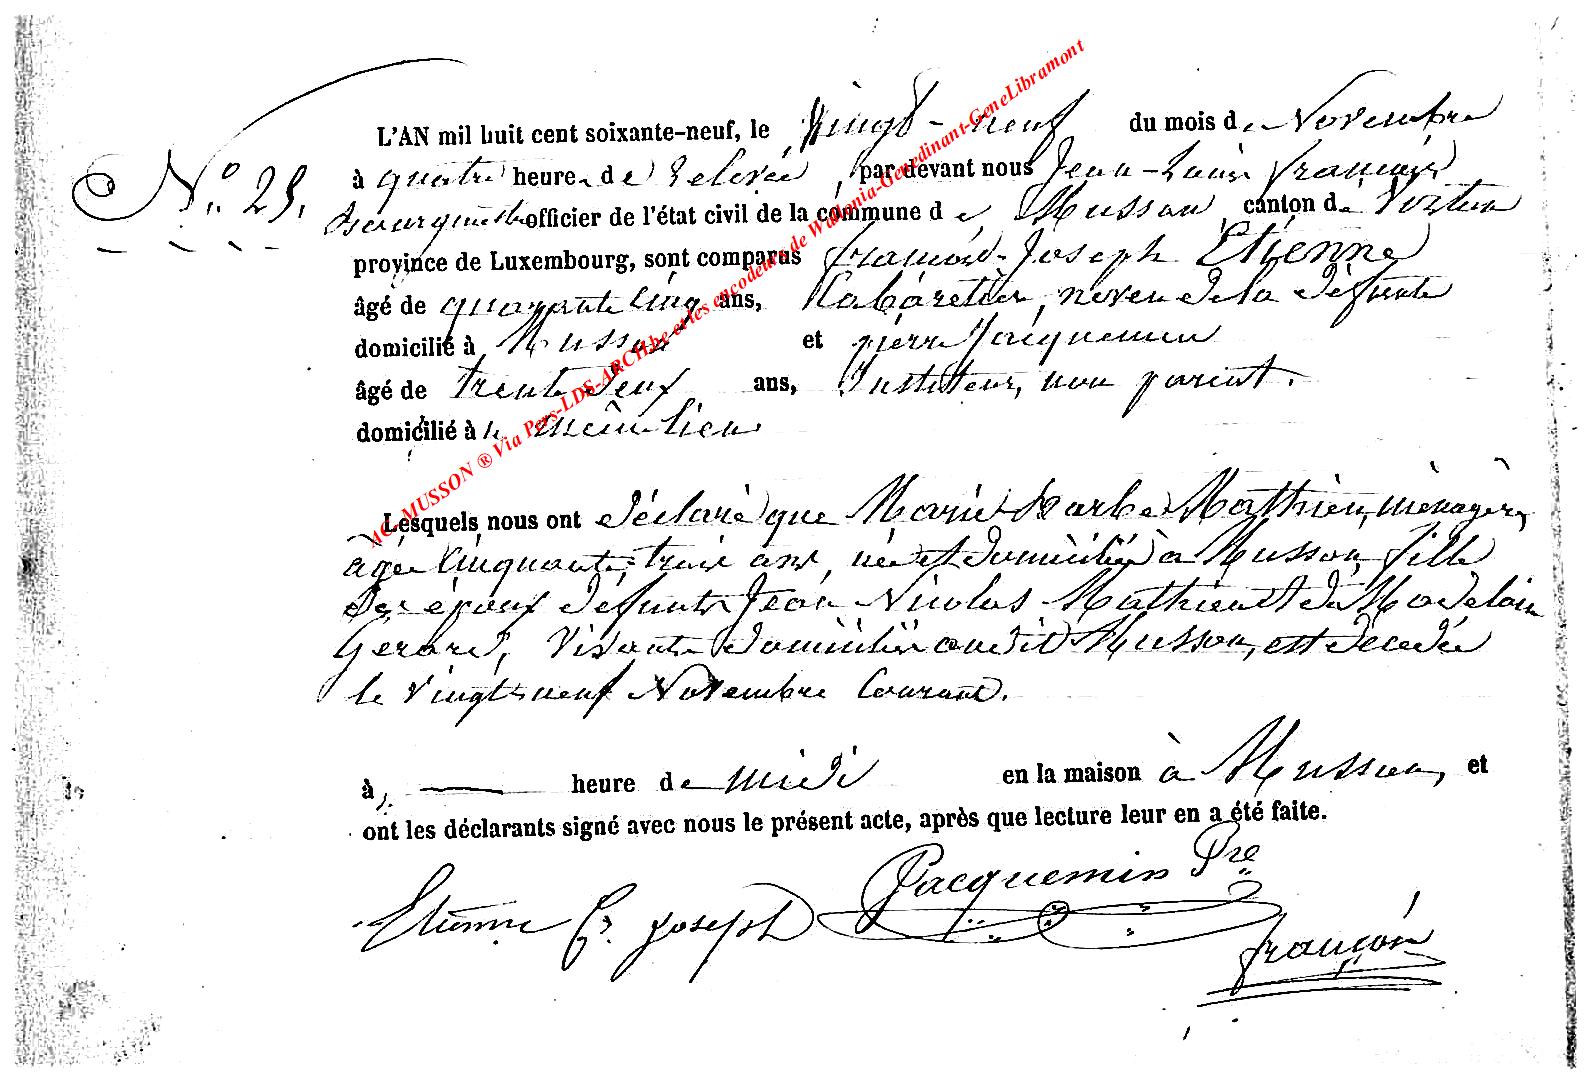 L'AN mil huit cent soixante-neuf, le vingt-neuf du mois de Novembre
N° 25. à quatre heure de relevée, par devant nous Jean-Louis François
Bourgmestre officier de l'état civil de la commune de Musson, canton de Virton
province de Luxembourg, sont comparus François-Joseph Etienne
âgé de quarante cinq ans, Cabaretier, neveu de la défunte
domicilié à Musson et pierre Jacquemin
âgé de trente deux ans, Instituteur, non parent.
domicilié à même lieu
Lesquels nous ont déclaré que Marie Barbe Mathieu, ménagère,
âgée cinquante-trois ans, née et domiciliée à Musson, fille
des époux défunts Jean Nicolas Mathieu et de Madelaine
Gerard, vivants domiciliés audit Musson, est décédée
le vingt-neuf Novembre Courant.
à heure de midi en la maison à Musson, et
ont les déclarants signé avec nous le présent acte, après que lecture leur en a été faite.
Jacquemin Pre
Etienne Fs Joseph
françois
AC-MUSSON ® Via Pers-LDS-ARCH.be et les encodeurs de Wallonia-Genedinant-GeneLibramont